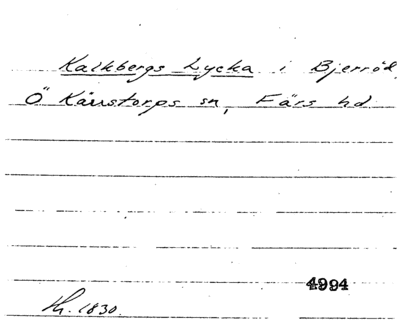 Kalkbergs Lycka i Bjerröd,
Ö Kärrstorps sn, Färs hd
4994
Hr. 1830.